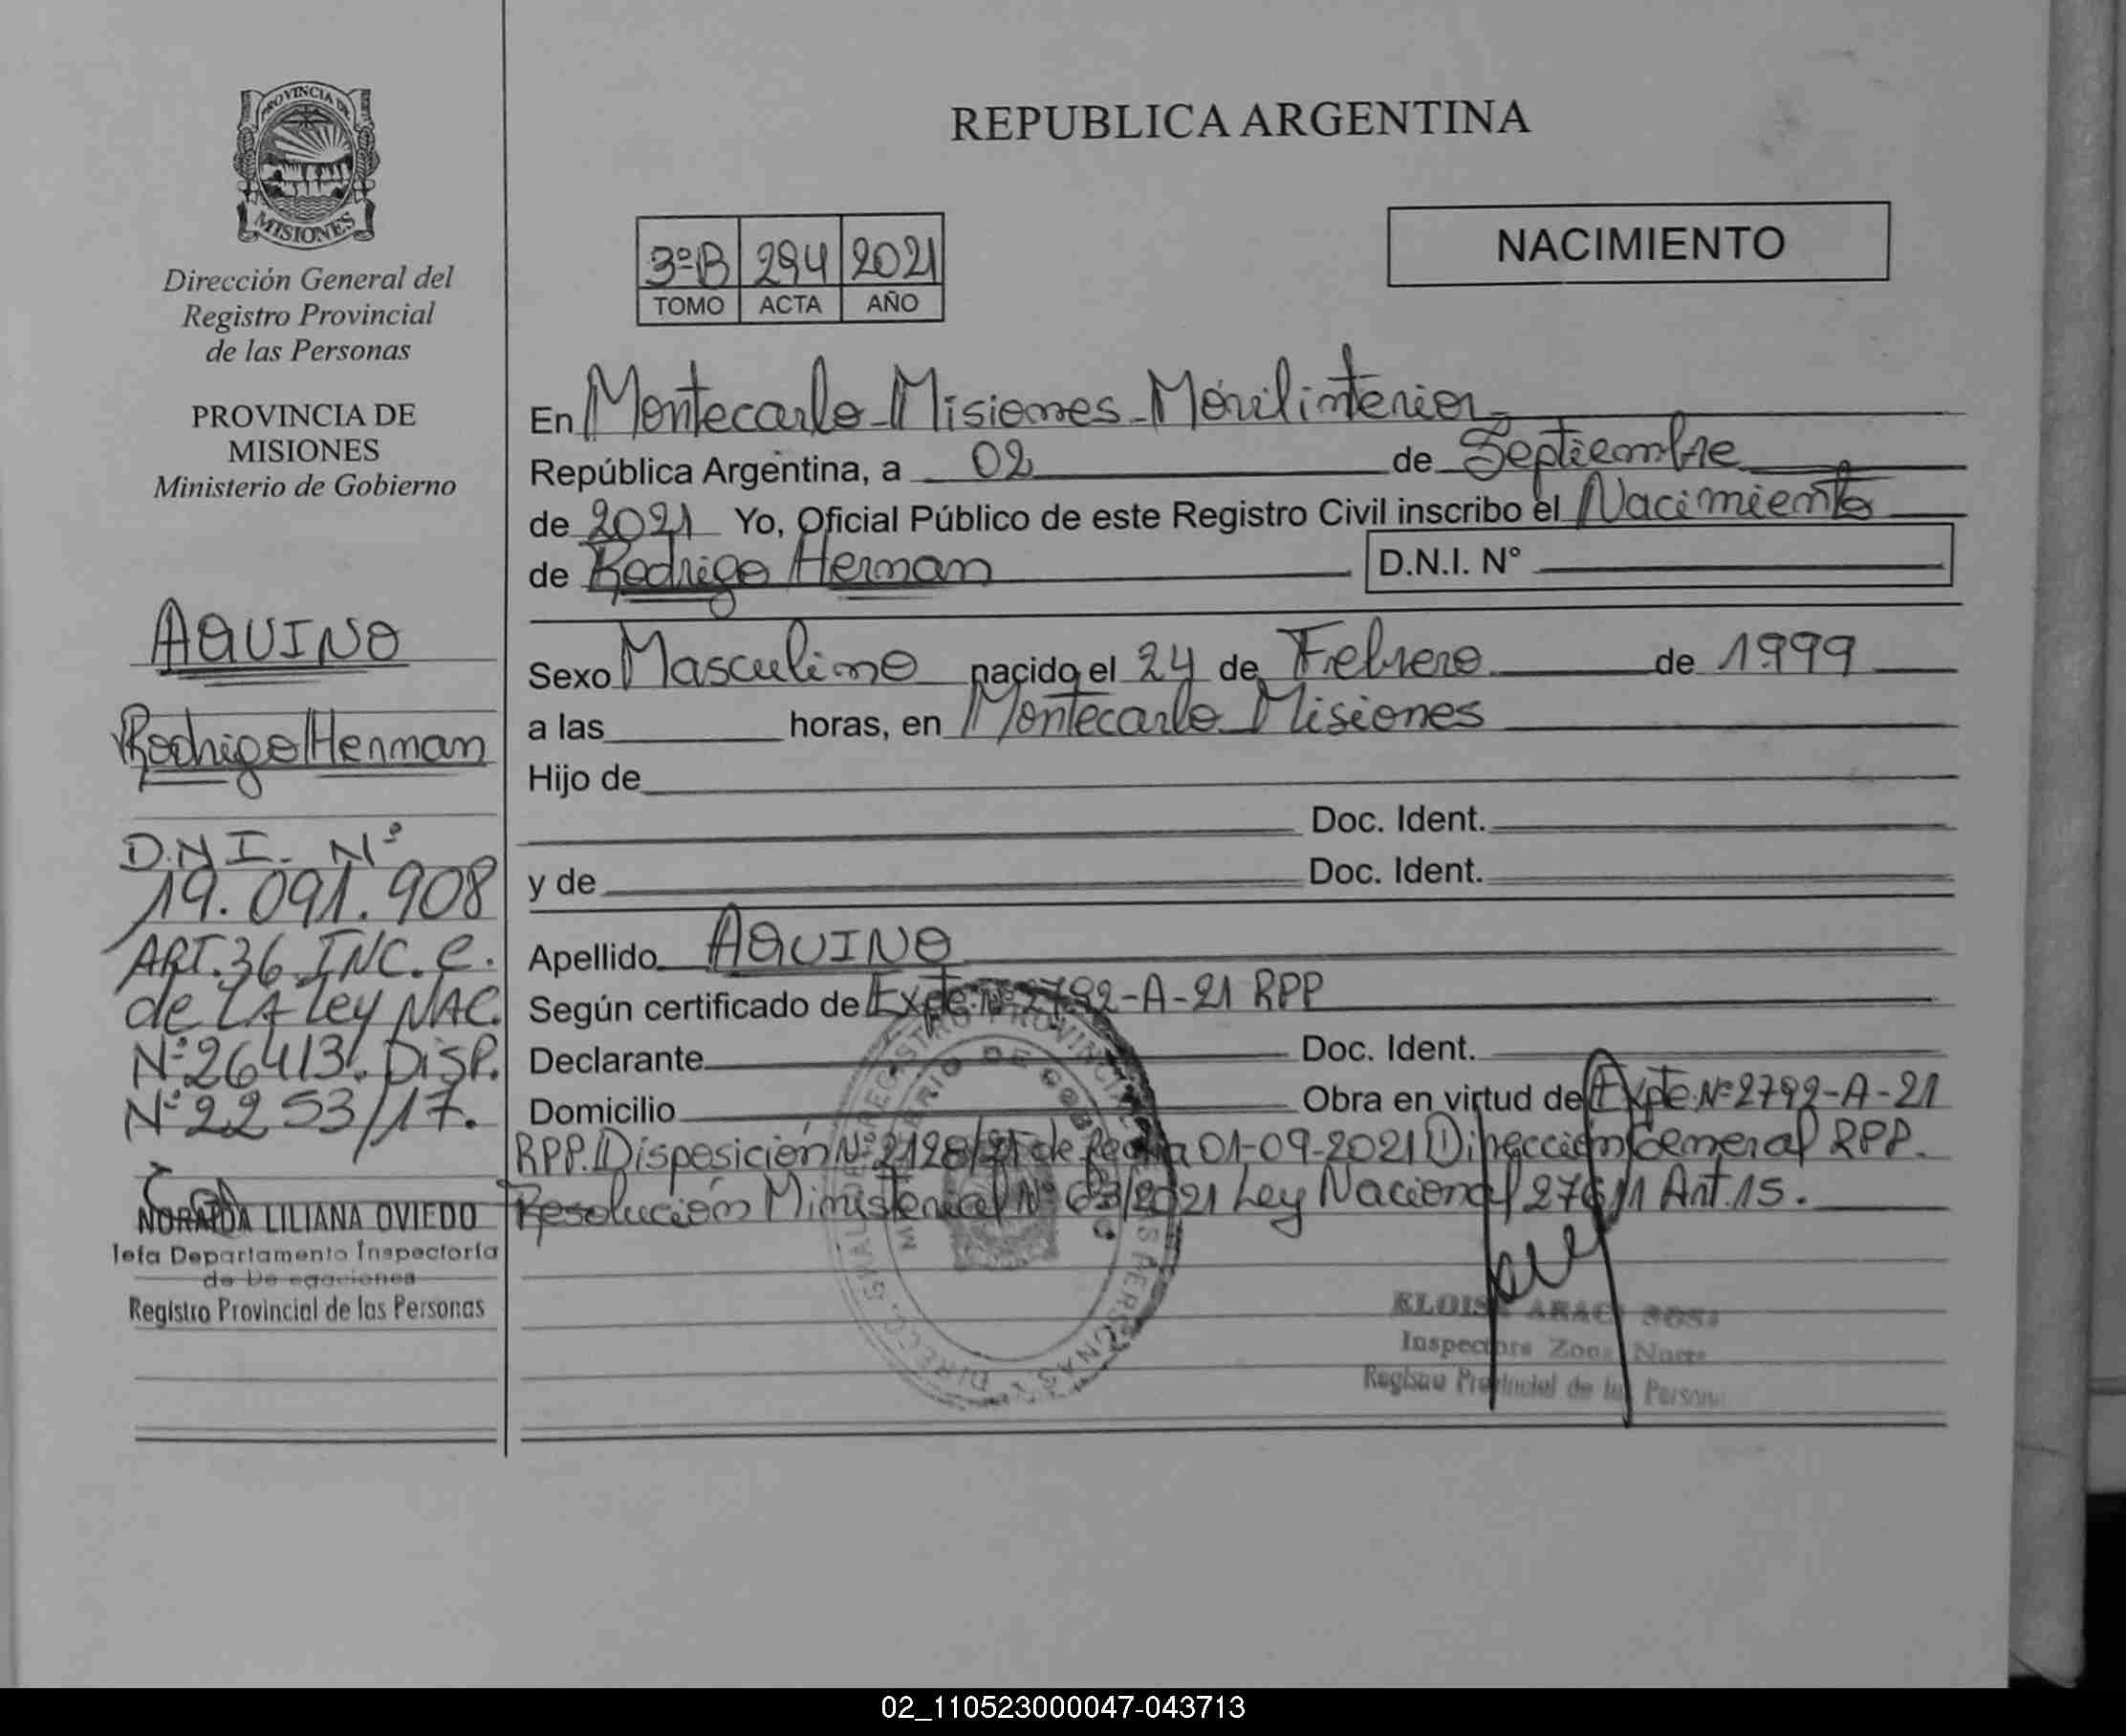 PROVINCIA DE
MISIONES
Dirección General del
Registro Provincial
de las Personas
PROVINCIA DE
MISIONES
Ministerio de Gobierno
AQUINO
Rodrigo Hernan
D.N.I. Nº
19.091.908
ART.36 INC.C.
de LA Ley NAC.
Nº26413. DISP.
Nº2253/17.
NORAIDA LILIANA OVIEDO
Jefa Departamento Inspectoría
de De egaciones
Registro Provincial de las Personas
REPUBLICA ARGENTINA
3ºB 294 2021
TOMO ACTA AÑO
NACIMIENTO
En Montecarlo-Misiones-Móvil interior
República Argentina, a 02 de Septiembre
de 2021 Yo, Oficial Público de este Registro Civil inscribo el Nacimiento
de Rodrigo Hernan D.N.I. N°
Sexo Masculino nacido el 24 de Febrero de 1999
a las horas, en Montecarlo Misiones
Hijo de
Doc. Ident.
y de Doc. Ident.
Apellido AQUINO
Según certificado de Expte.Nº2792-A-21 RPP
Declarante Doc. Ident.
Domicilio Obra en virtud de Expte.Nº2792-A-21
RPP. Disposición Nº 2128/21 de fecha 01-09-2021 Dirección General RPP.
Resolución Ministerial Nº 63/2021 Ley Nacional 27611 Art.15.
Inspectora Zona Norte
Registro Provincial de las Persona
02_110523000047-043713